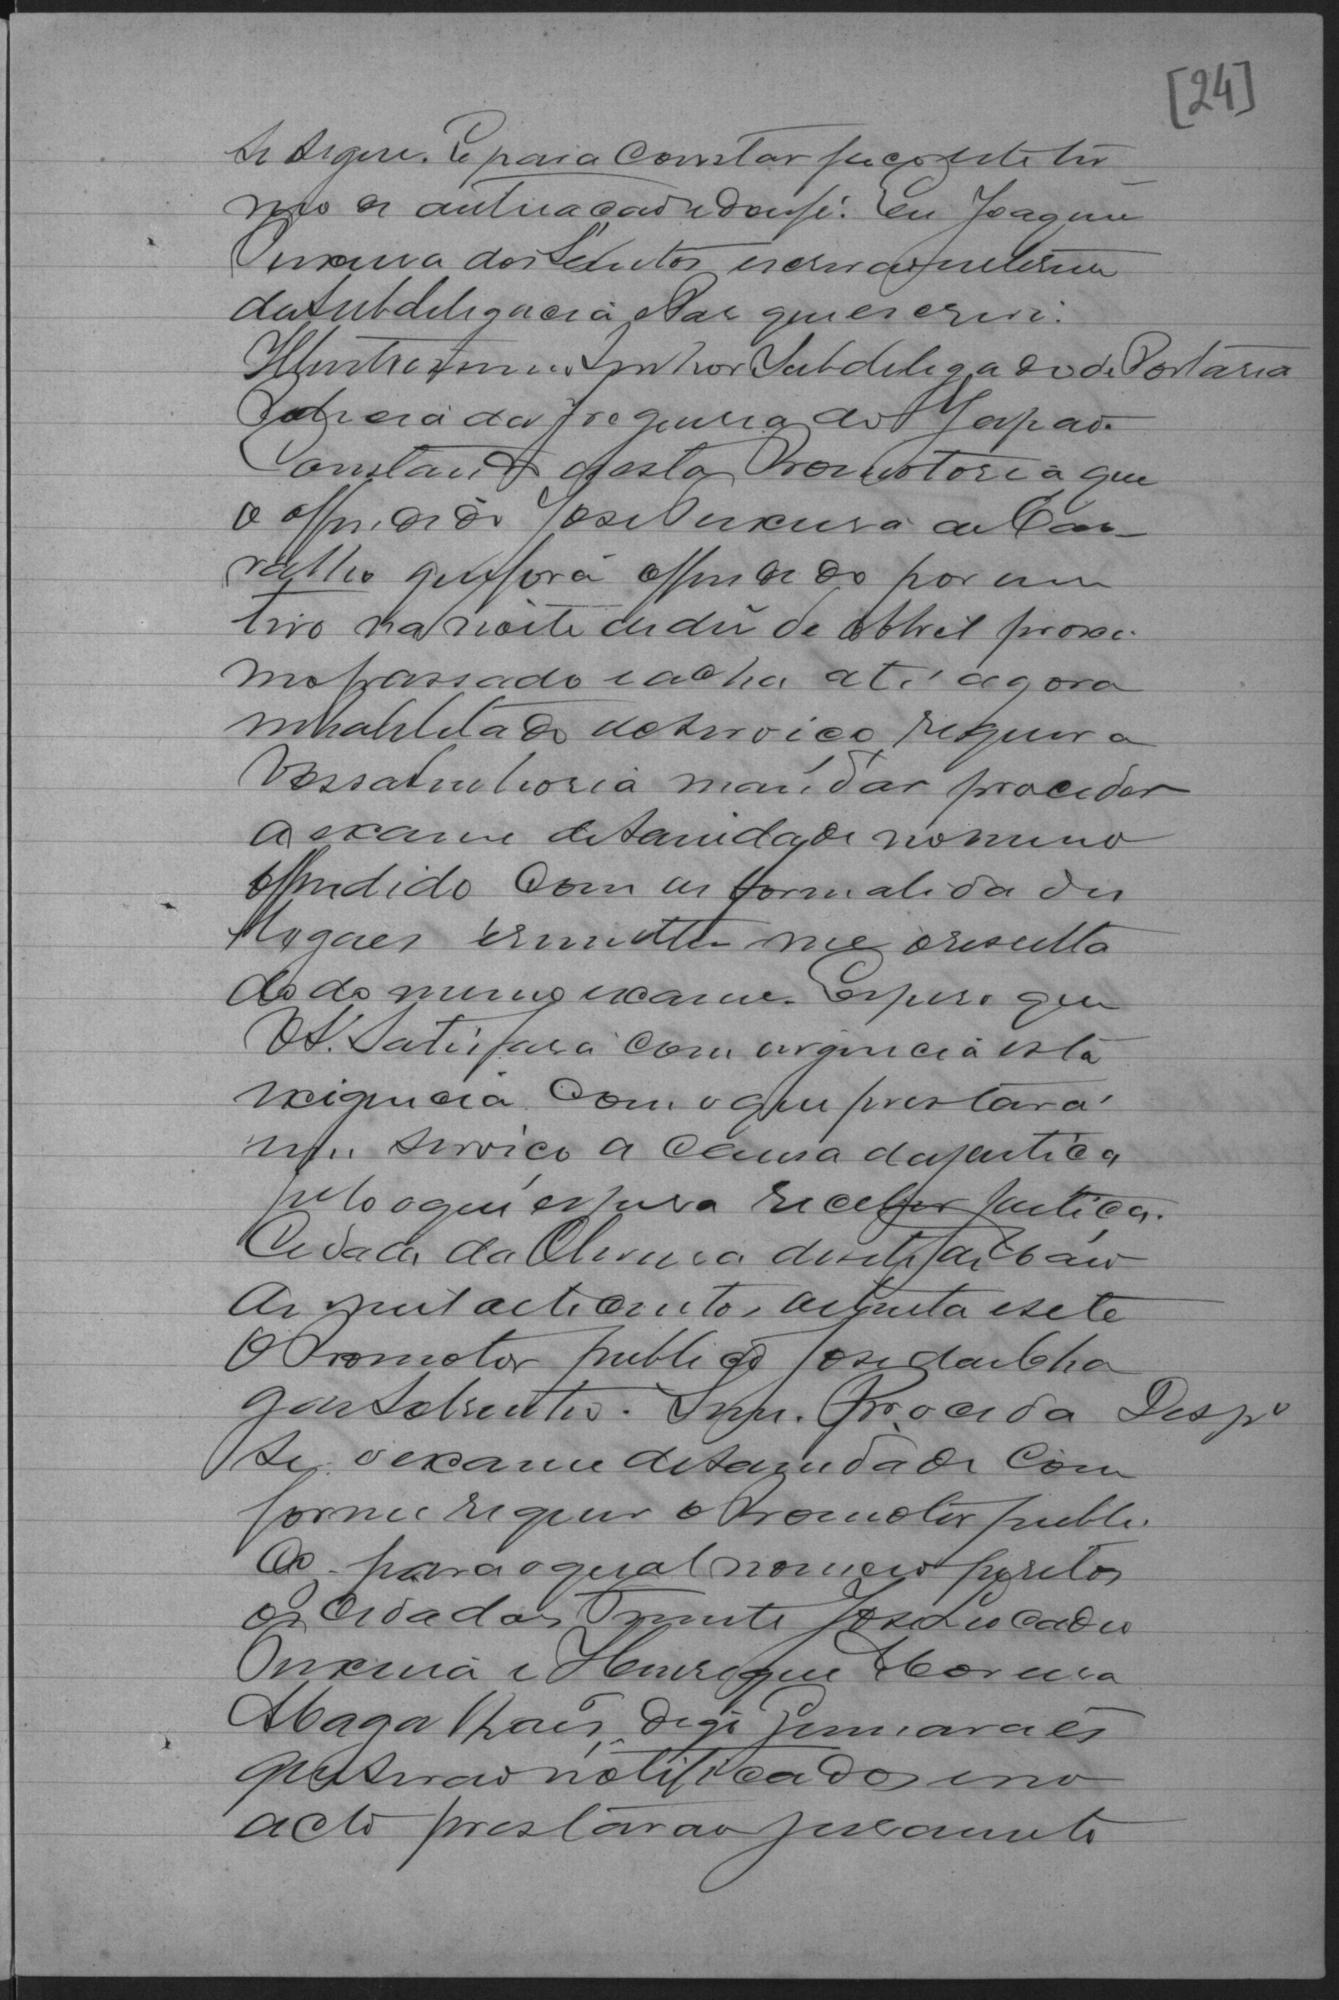 [24]
se segue. E para constar faço este ter
mo de autuacão e dou fé. Eu Joaquim
Pereira dos Santos escrivão interino
da Subdelegacia e Paz que escrevi.
Illustrissimo Senhor Subdelegado de Portaria
Policia da freguesia do Japão.
Constando a esta Promotoria que
o offendido José Pereira de Car
valho que fora offendido por um
tiro na noite de dez de Abril proxi
mo passado e acha até agora
inhabilitado de serviço, requer a
Vossa Senhoria mandar proceder
a exame de sanidade no mesmo
offendido com as formalidades
legaes e remetter me o resulta
do do mesmo exame. Espero que
VS. satisfará com urgencia esta
exigencia com o que prestará
um serviço a causa da justiça
pelo o que espera receber justiça.
Cidade da Oliveira de Maio
de mil oito centos setenta e sete
O Promotor publico José das Cha
gas . Proceda Desp.º
se o exame de sanidade con
forme requer o Promotor publi
co para o qual nomeio peritos
os Cidadãos Tenente José Leocadio
Pereira e Henrique Moreira
Magalhães, digo Guimarães
que serão notificados e no
acto prestarão juramento